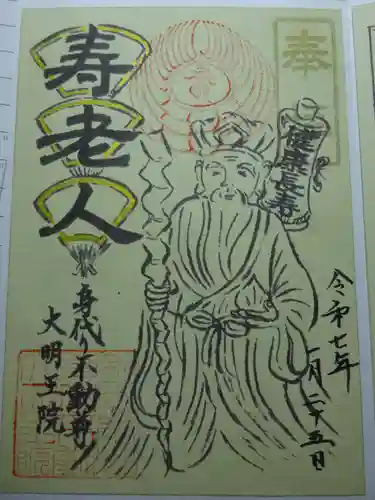 奉
健康長寿
令和七年
一月二十五日
寿老人
身代り不動尊
大明王院